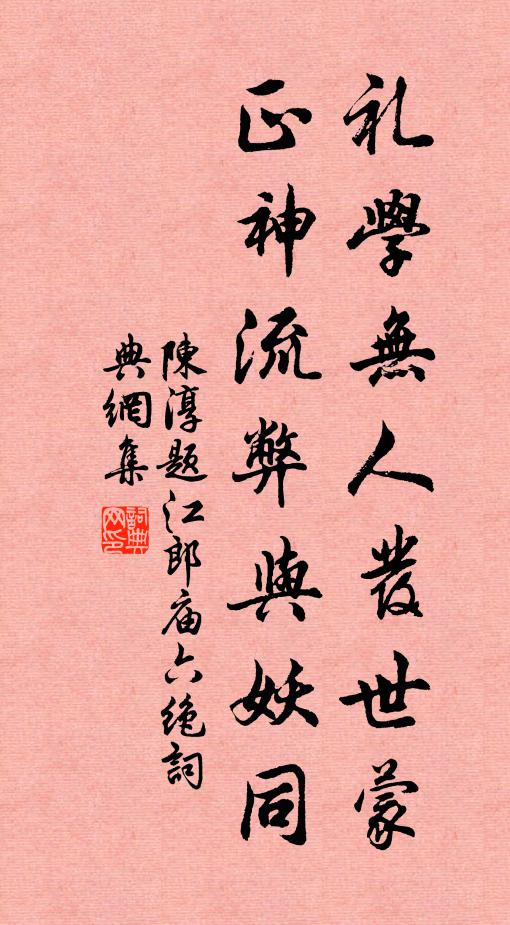 礼學無人發世蒙
正神流弊與妖同
陳淳题江郎庙六绝詞
典網集
詞典网印